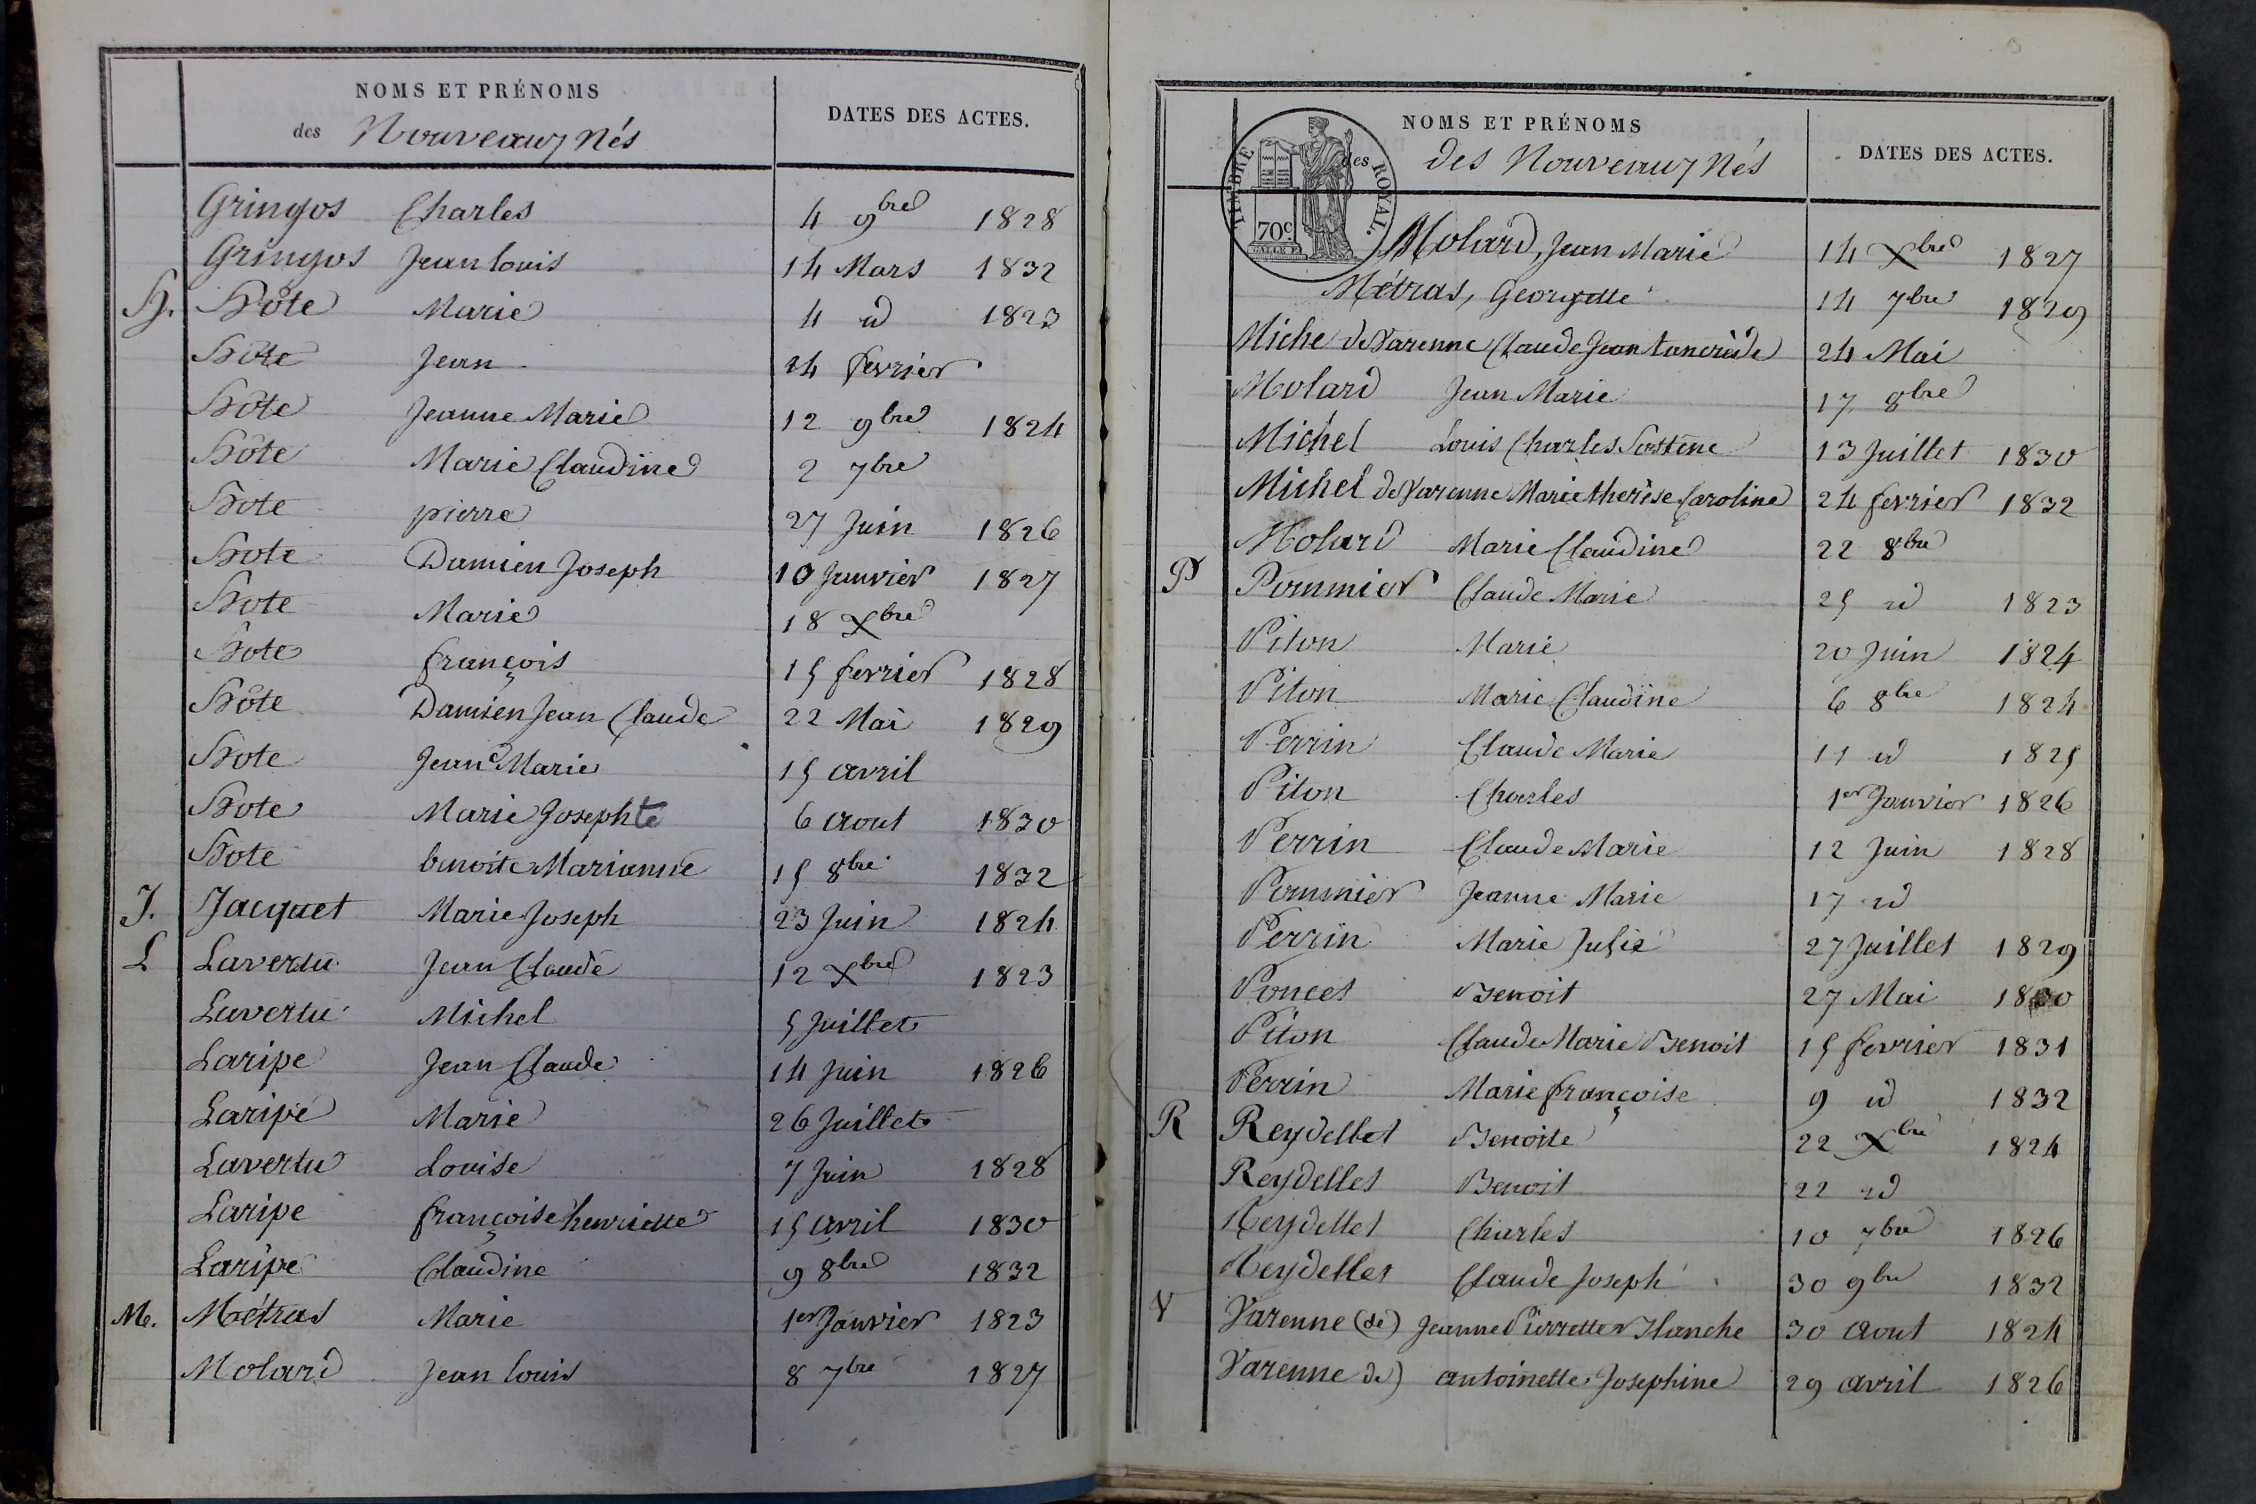 NOMS ET PRÉNOMS
des Nouveaux Nés
DATES DES ACTES.
Gringos Charles 4 9bre 1828
Gringos Jean Louis 14 Mars 1832
H. Hôte Marie 4 id 1823
Hôte Jean 24 fevrier
Hôte Jeanne Marie 12 9bre 1824
Hôte Marie Claudine 2 7bre
Hote pierre 27 Juin 1826
Hote Damien Joseph 10 Janvier 1827
Hote Marie 18 Xbre
Hote françois 15 fevrier 1828
Hôte Damien Jean Claude 22 Mai 1829
Hote Jeane Marie 15 avril
Hote Marie Josephte 6 aout 1830
Hote benoite Marianne 15 8bre 1832
J. Jacquet Marie Joseph 23 Juin 1824
L Lavertu Jean Claude 12 Xbre 1823
Lavertu Michel 5 Juillet
Laripe Jean Claude 14 Juin 1826
Laripe Marie 26 Juillet
Lavertu Louise 7 Juin 1828
Laripe françoise henriette 15 avril 1830
Laripe Claudine 9 8bre 1832
M. Métras Marie 1er Janvier 1823
Molard Jean Louis 8 7bre 1827
NOMS ET PRÉNOMS
des
des Nouveaux Nés
DATES DES ACTES.
TIMBRE ROYAL.
70c.
Molard, Jean Marie 14 Xbre 1827
Métras, Georgette 14 7bre 1829
Miche de Varenne Claude Jean tancrède 24 Mai
Molard Jean Marie 17 8bre
Michel Louis Charles Sostene 13 Juillet 1830
Michel de Varenne Marie therèse Caroline 24 fevrier 1832
Molard Marie Claudine 22 8bre
P Pommier Claude Marie 25 id 1823
Piton Marie 20 Juin 1824
Piton Marie Claudine 6 8bre 1824
Perrin Claude Marie 11 id 1825
Piton Charles 1er Janvier 1826
Perrin Claude Marie 12 Juin 1828
Pommier Jeanne Marie 17 id
Perrin Marie Julie 27 Juillet 1829
Poncet Benoit 27 Mai 1830
Piton Claude Marie Benoit 15 fevrier 1831
Perrin Marie françoise 9 id 1832
R Reydellet Benoite 22 Xbre 1824
Reydellet Benoit 22 id
Reydellet Charles 10 7bre 1826
Reydellet Claude Joseph 30 9bre 1832
V Varenne (de) Jeanne Pierrette Blanche 30 aout 1824
Varenne de) antoinette Josephine 29 avril 1826